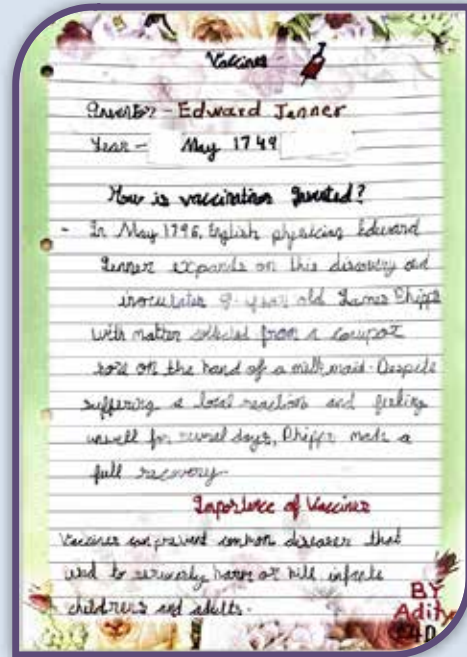 Vaccines
Inventor - Edward Jenner
Year - May 1749
How is vaccination Invented?
- In May 1796, English physician Edward
Jenner expands on this discovery and
inoculates 9-year old James Phipps
with matter collected from a cowpox
sore on the hand of a milkmaid. Despite
suffering a local reaction and feeling
unwell for several days, Phipps made a
full recovery.
Importence of Vaccines
Vaccines can prevent common diseases that
used to seriously harm or kill infants
childrens and adults.
BY
Aditya
4D